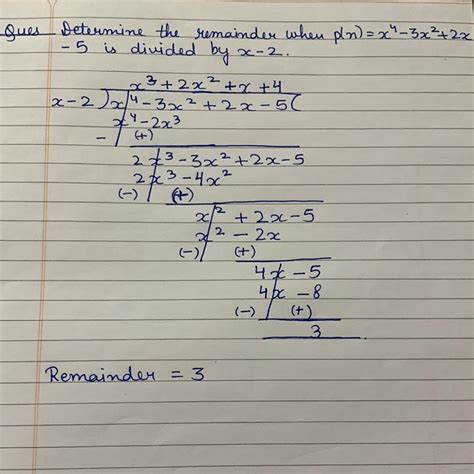 Ques Determine the remainder when p(n) = x⁴ - 3x² + 2x
- 5 is divided by x - 2.
x³ + 2x² + x + 4
x - 2 ) x⁴ - 3x² + 2x - 5 (
x⁴ - 2x³
- (+)
2x³ - 3x² + 2x - 5
2x³ - 4x²
(-) (+)
x² + 2x - 5
x² - 2x
(-) (+)
4x - 5
4x - 8
(-) (+)
3
Remainder = 3